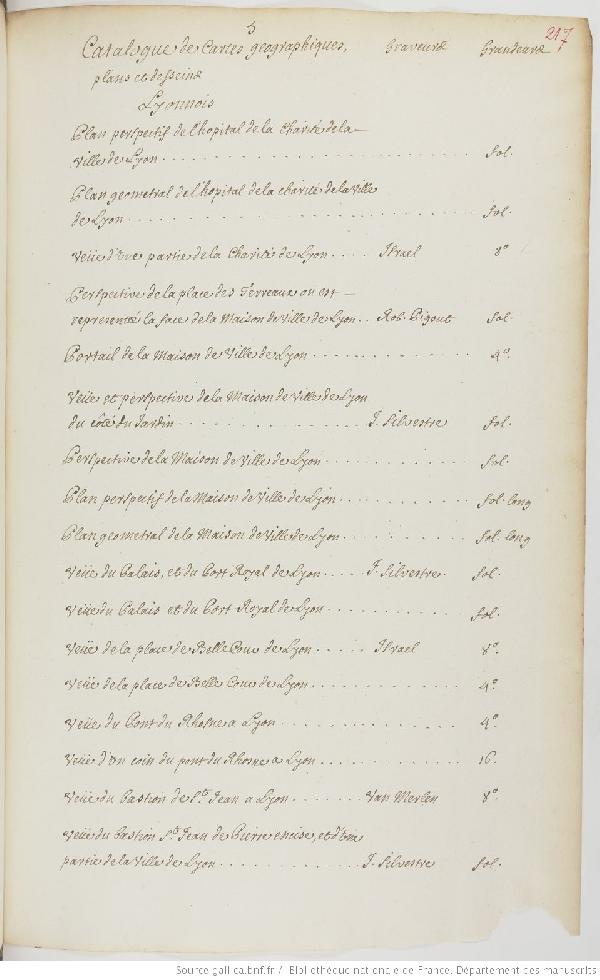 5
217
Catalogue de Cartes geographiques, Graveurs Grandeurs
plans et desseins
Lyonnois
Plan perspectif de l'hopital de la Charité de la
Ville de Lyon . . . fol.
Plan geometral de l'hopital de la charité de la Ville
de Lyon . . . fol.
Veüe d'Vne partie de la Charité de Lyon . . . Israel 8º
Perspective de la place des Terreaux ou est
representé la face de la Maison de Ville de Lyon . . Rob. Pigout fol.
Portail de la Maison de Ville de Lyon . . . 4º.
Veüe et perspective de la Maison de Ville de Lyon
du côté du Jardin . . . J. Silvestre fol.
Perspective de la Maison de Ville de Lyon . . . fol.
Plan perspectif de la Maison de Ville de Lyon . . . fol. long
Plan geometral de la Maison de Ville de Lyon . . . fol. long
Veüe du Palais, et du Port Royal de Lyon . . . J. Silvestre fol.
Veüe du Palais et du Port Royal de Lyon . . . fol.
Veüe de la place de Belle Cour de Lyon . . . Israel 8º.
Veüe de la place de Belle Cour de Lyon . . . 4º
Veüe du Pont du Rhosne a Lyon . . . 4º
Veüe d'Vn coin du pont du Rhosne a Lyon . . . 16.
Veüe du Bastion de St. Jean a Lyon . . . Van Merlen 8º
Veüe du Bastion St. Jean de Pierre encise, et d'Vne
partie de la Ville de Lyon . . . J. Silvestre fol.
Source gallica.bnf.fr / Bibliothèque nationale de France. Département des manuscrits